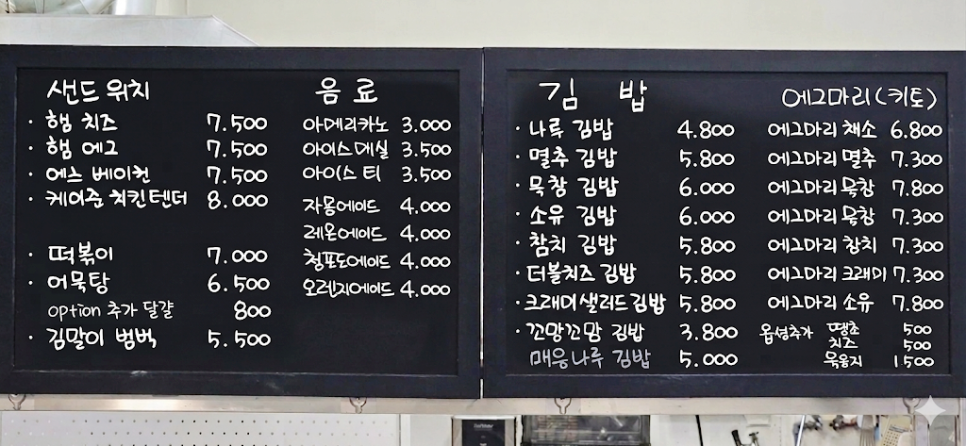 샌드위치
· 햄 치즈 7.500
· 햄 에그 7.500
· 에스 베이컨 7.500
· 케이준 치킨텐더 8.000
· 떡볶이 7.000
· 어묵탕 6.500
option 추가 달걀 800
· 김말이 범벅 5.500
음료
아메리카노 3.000
아이스매실 3.500
아이스 티 3.500
자몽에이드 4.000
레몬에이드 4.000
청포도에이드 4.000
오렌지에이드 4.000
김 밥
· 나루 김밥 4.800
· 멸추 김밥 5.800
· 묵참 김밥 6.000
· 소유 김밥 6.000
· 참치 김밥 5.800
· 더블치즈 김밥 5.800
· 크래미샐러드김밥 5.800
· 꼬망꼬맘 김밥 3.800
매응나루 김밥 5.000
에그마리(키토)
에그마리 채소 6.800
에그마리 멸추 7.300
에그마리 묵참 7.800
에그마리 7.300
에그마리 참치 7.300
에그마리 크래미 7.300
에그마리 소유 7.800
추가 땡초 500
치즈 500
1500